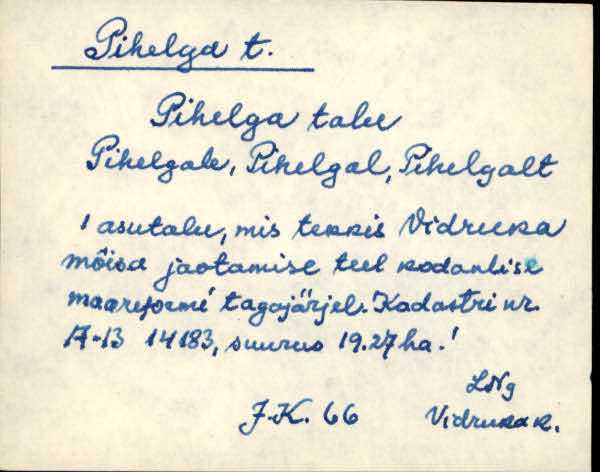 Pihelga t.
Pihelga talu
Pihelgale, Pihelgal, Pihelgalt
! asutalu, mis tekkis Vidruka
mõisa jaotamise teel kodanlise
maareformi tagajärjel. Kadastri nr.
A-13 14183, suurus 19.27 ha.!
LNg
J.K. 66 Vidruka k.